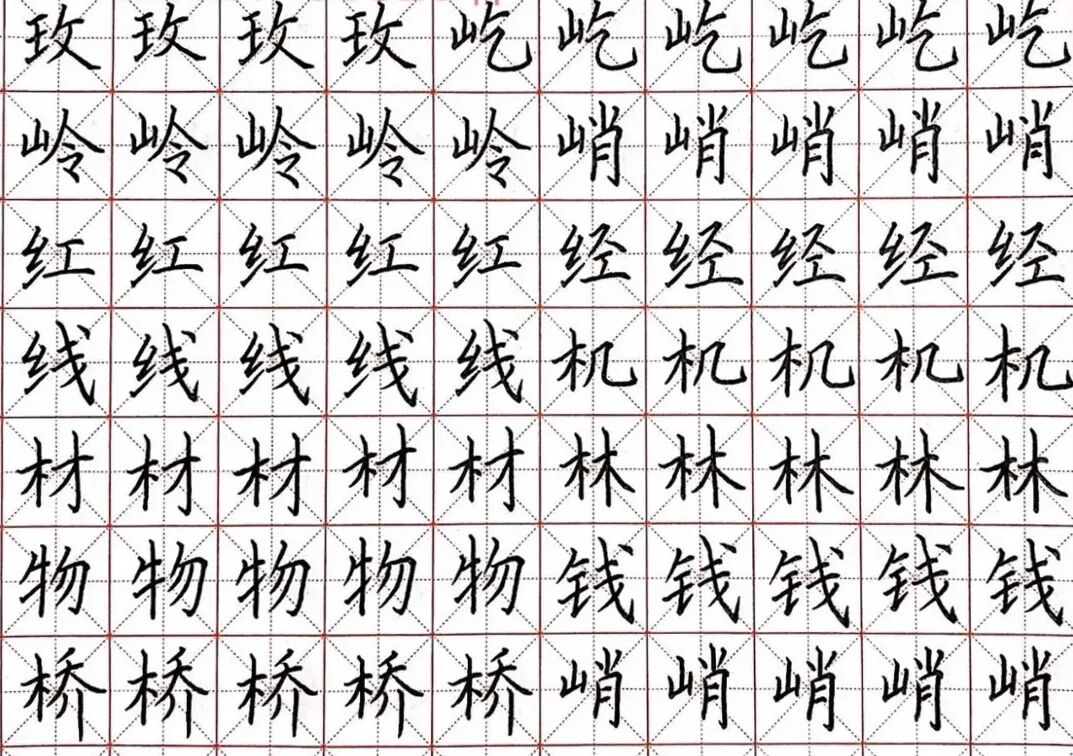 玫玫玫玫屹屹屹屹屹屹
岭岭岭岭岭峭峭峭峭峭
红红红红红经经经经经
线线线线线机机机机机
材材材材材林林林林林
物物物物物钱钱钱钱钱
桥桥桥桥桥峭峭峭峭峭